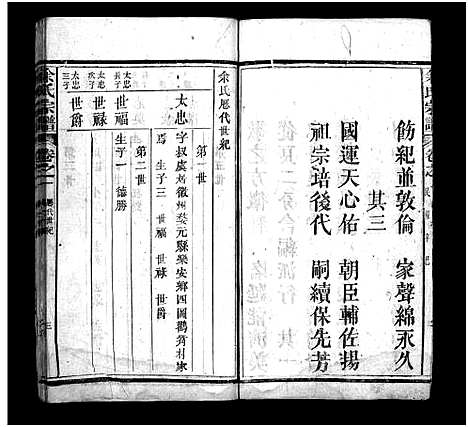 飭紀並敦倫　家聲綿永久
其三
國運天心佑　朝臣輔佐揚
祖宗培後代　嗣續保先芳
余氏宗譜
卷之一
余氏歷代世紀
第一世
太忠
字叔處遷徽州婺元縣樂安鄉四圖鸛肖村家
焉　生子三　世福　世禄　世爵
第二世
太忠長子
世福
生子一　德勝
太忠次子
世禄
太忠三子
世爵
余氏宗譜
卷之一
歷代世紀